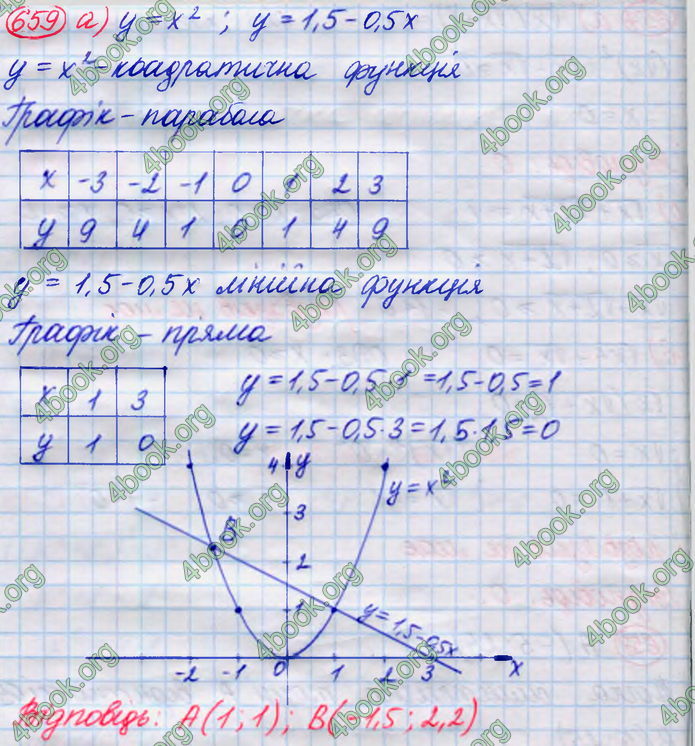 659 а) y = x² ; y = 1,5 - 0,5x
y = x² - квадратична функція
Графік - парабола
x -3 -2 -1 0 1 2 3
y 9 4 1 0 1 4 9
y = 1,5 - 0,5x лінійна функція
Графік - пряма
x 1 3
y 1 0
y = 1,5 - 0,5·1 = 1,5 - 0,5 = 1
y = 1,5 - 0,5·3 = 1,5·1,5 = 0
4 y
y = x²
3
B
2
1
y = 1,5 - 0,5x
-2 -1 0 1 2 3 x
Відповідь: A(1; 1); B(-1,5; 2,2)
4book.org